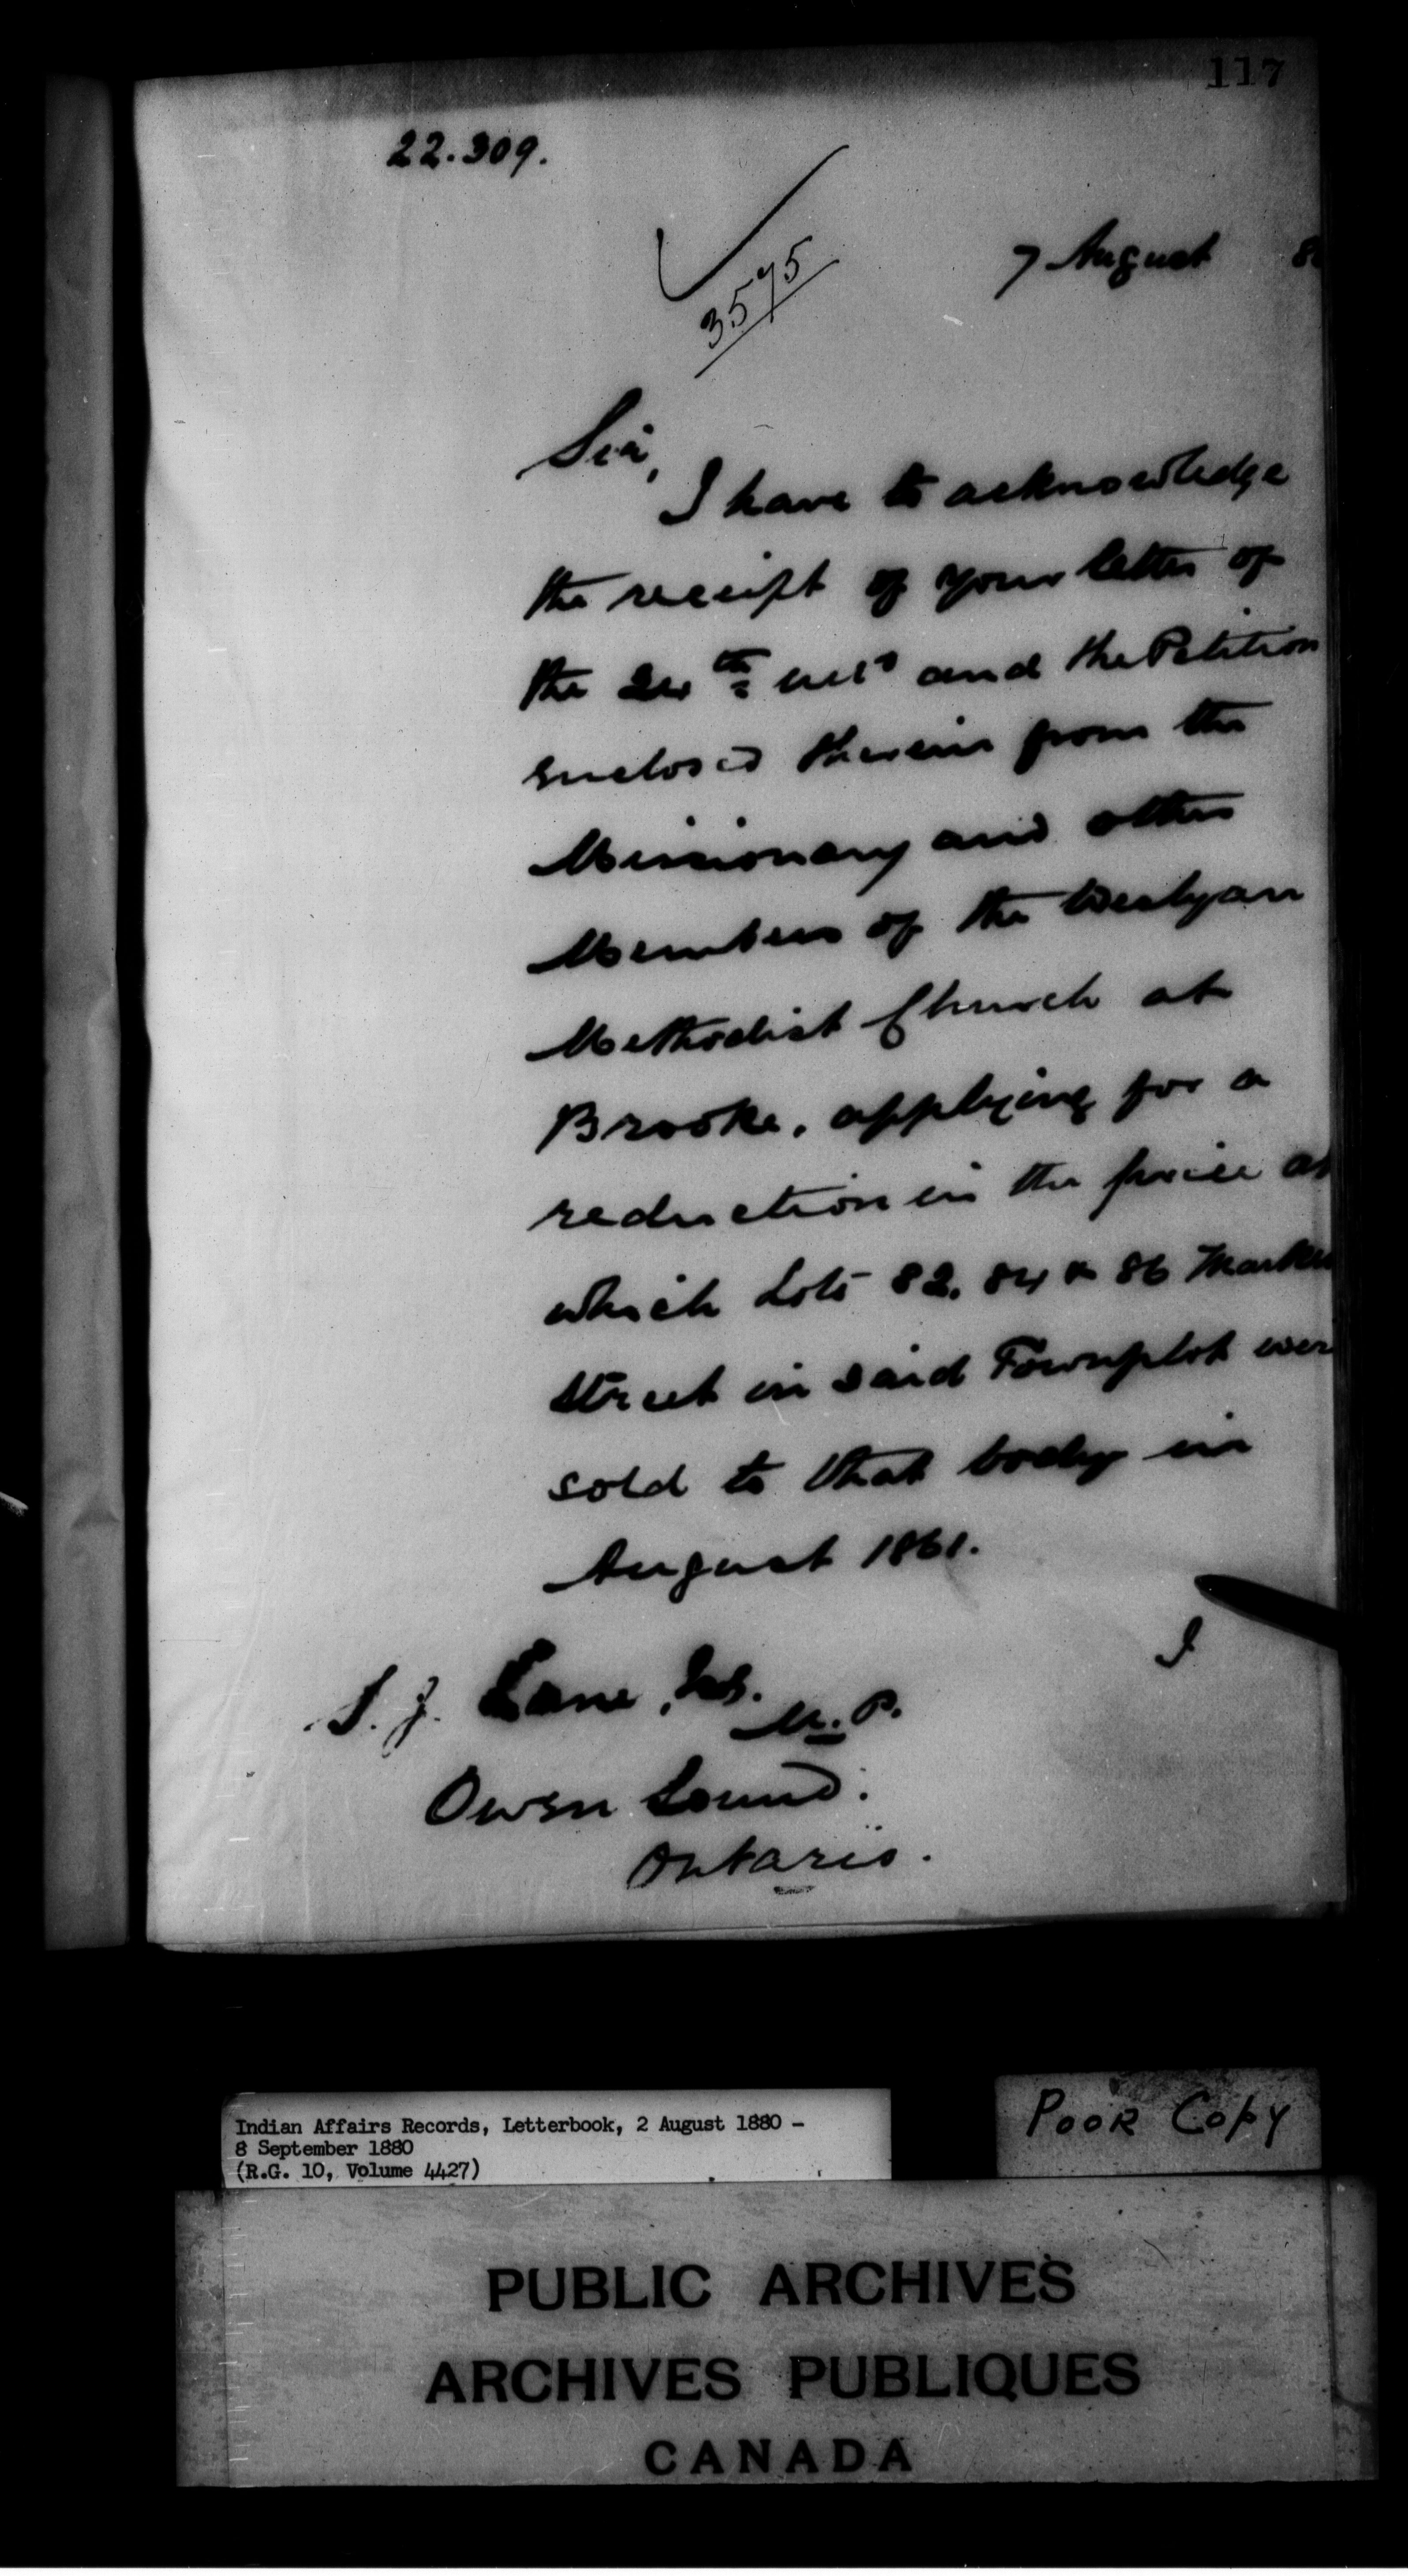 117
22.309.
7 August 80
3575
Sir,
I have to acknowledge
the receipt of your letter of
the 24th ulto and the Petition
enclosed therein from the
Missionary and other
Members of the Wesleyan
Methodist Church at
Brooke, applying for a
reduction in the price at
which Lots 82, 84 & 86 Market
Street in said Townplot were
sold to that body in
August 1861.
I
S. J. Lane, Esq.
M. P.
Owen Sound.
Ontario.
Indian Affairs Records, Letterbook, 2 August 1880 -
8 September 1880
(R.G. 10, Volume 4427)
Poor Copy
PUBLIC ARCHIVES
ARCHIVES PUBLIQUES
CANADA